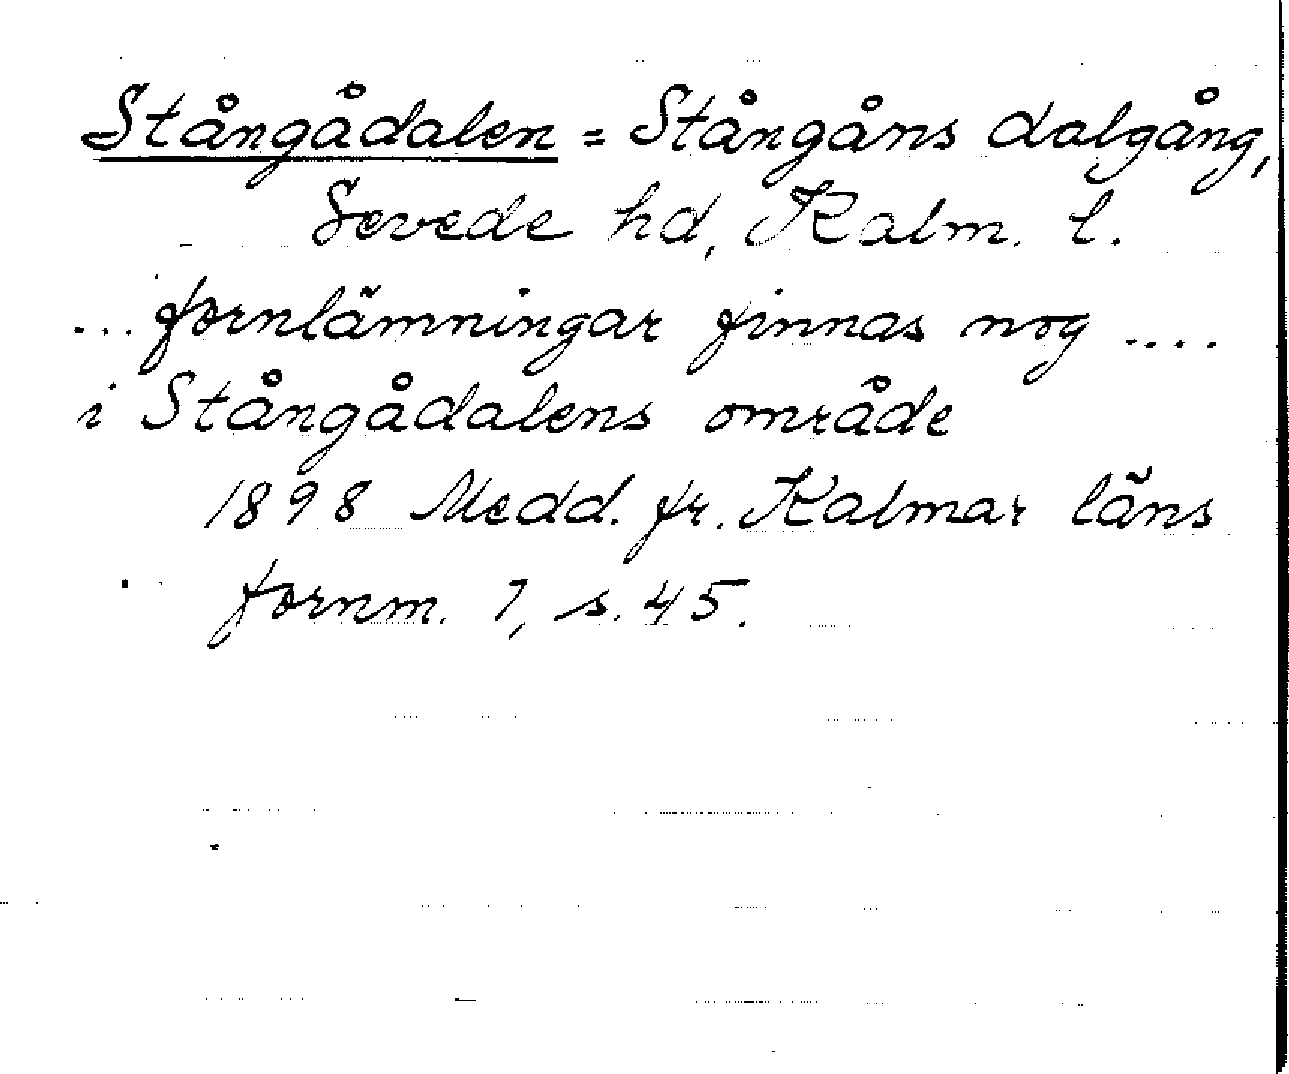 Stångådalen = Stångåns dalgång,
Sevede hd, Kalm. l.
... fornlämningar finnas nog ....
i Stångådalens område
1898 Medd. fr. Kalmar läns
fornm. 1, s. 45.